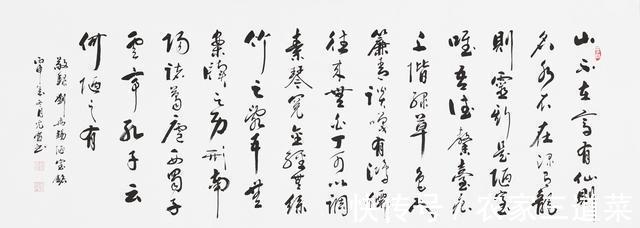 山不在高有仙則
名水不在深有龍
則靈斯是陋室
唯吾德馨苔痕
上階綠草色入
簾青談笑有鴻儒
往來無白丁可以調
素琴閱金經無絲
竹之亂耳無
案牘之勞形南
陽諸葛廬西蜀子
雲亭孔子云
何陋之有
敬録劉禹錫陋室銘
丙申 七月 書
快传号/农家三道菜